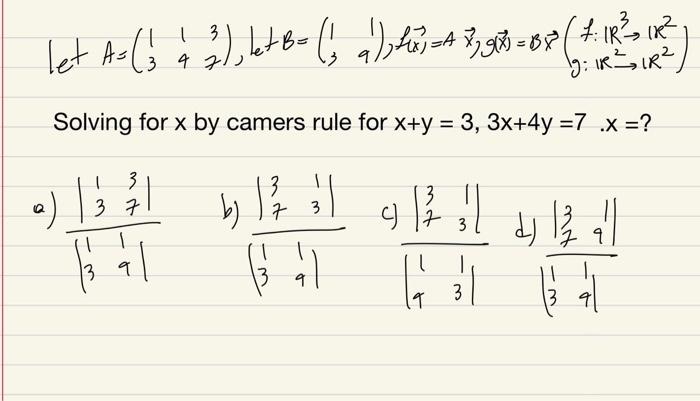 let A=(1 1 3 / 3 4 7), let B=(1 1 / 3 4), f(x⃗)=A x⃗, g(x⃗)=Bx⃗ (f: ℝ³→ℝ² / g: ℝ²→ℝ²)
Solving for x by camers rule for x+y = 3, 3x+4y =7 .x =?
a) |1 3 / 3 7| / |1 1 / 3 4| b) |3 1 / 7 3| / |1 1 / 3 4| c) |3 1 / 7 3| / |1 1 / 4 3| d) |3 1 / 7 4| / |1 1 / 3 4|